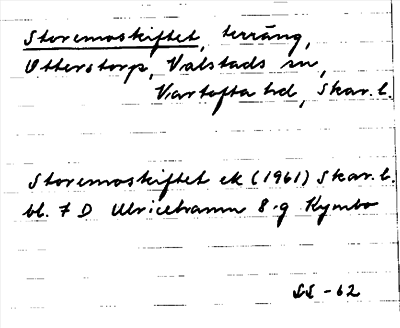 Storemoskiftet, terräng,
Otterstorp, Valstads sn,
Vartofta hd, Skar. l.
Storemoskiftet ek (1961) Skar. l.
bl. 7 D Ulricehamn 8 g Kymbo
SS - 62